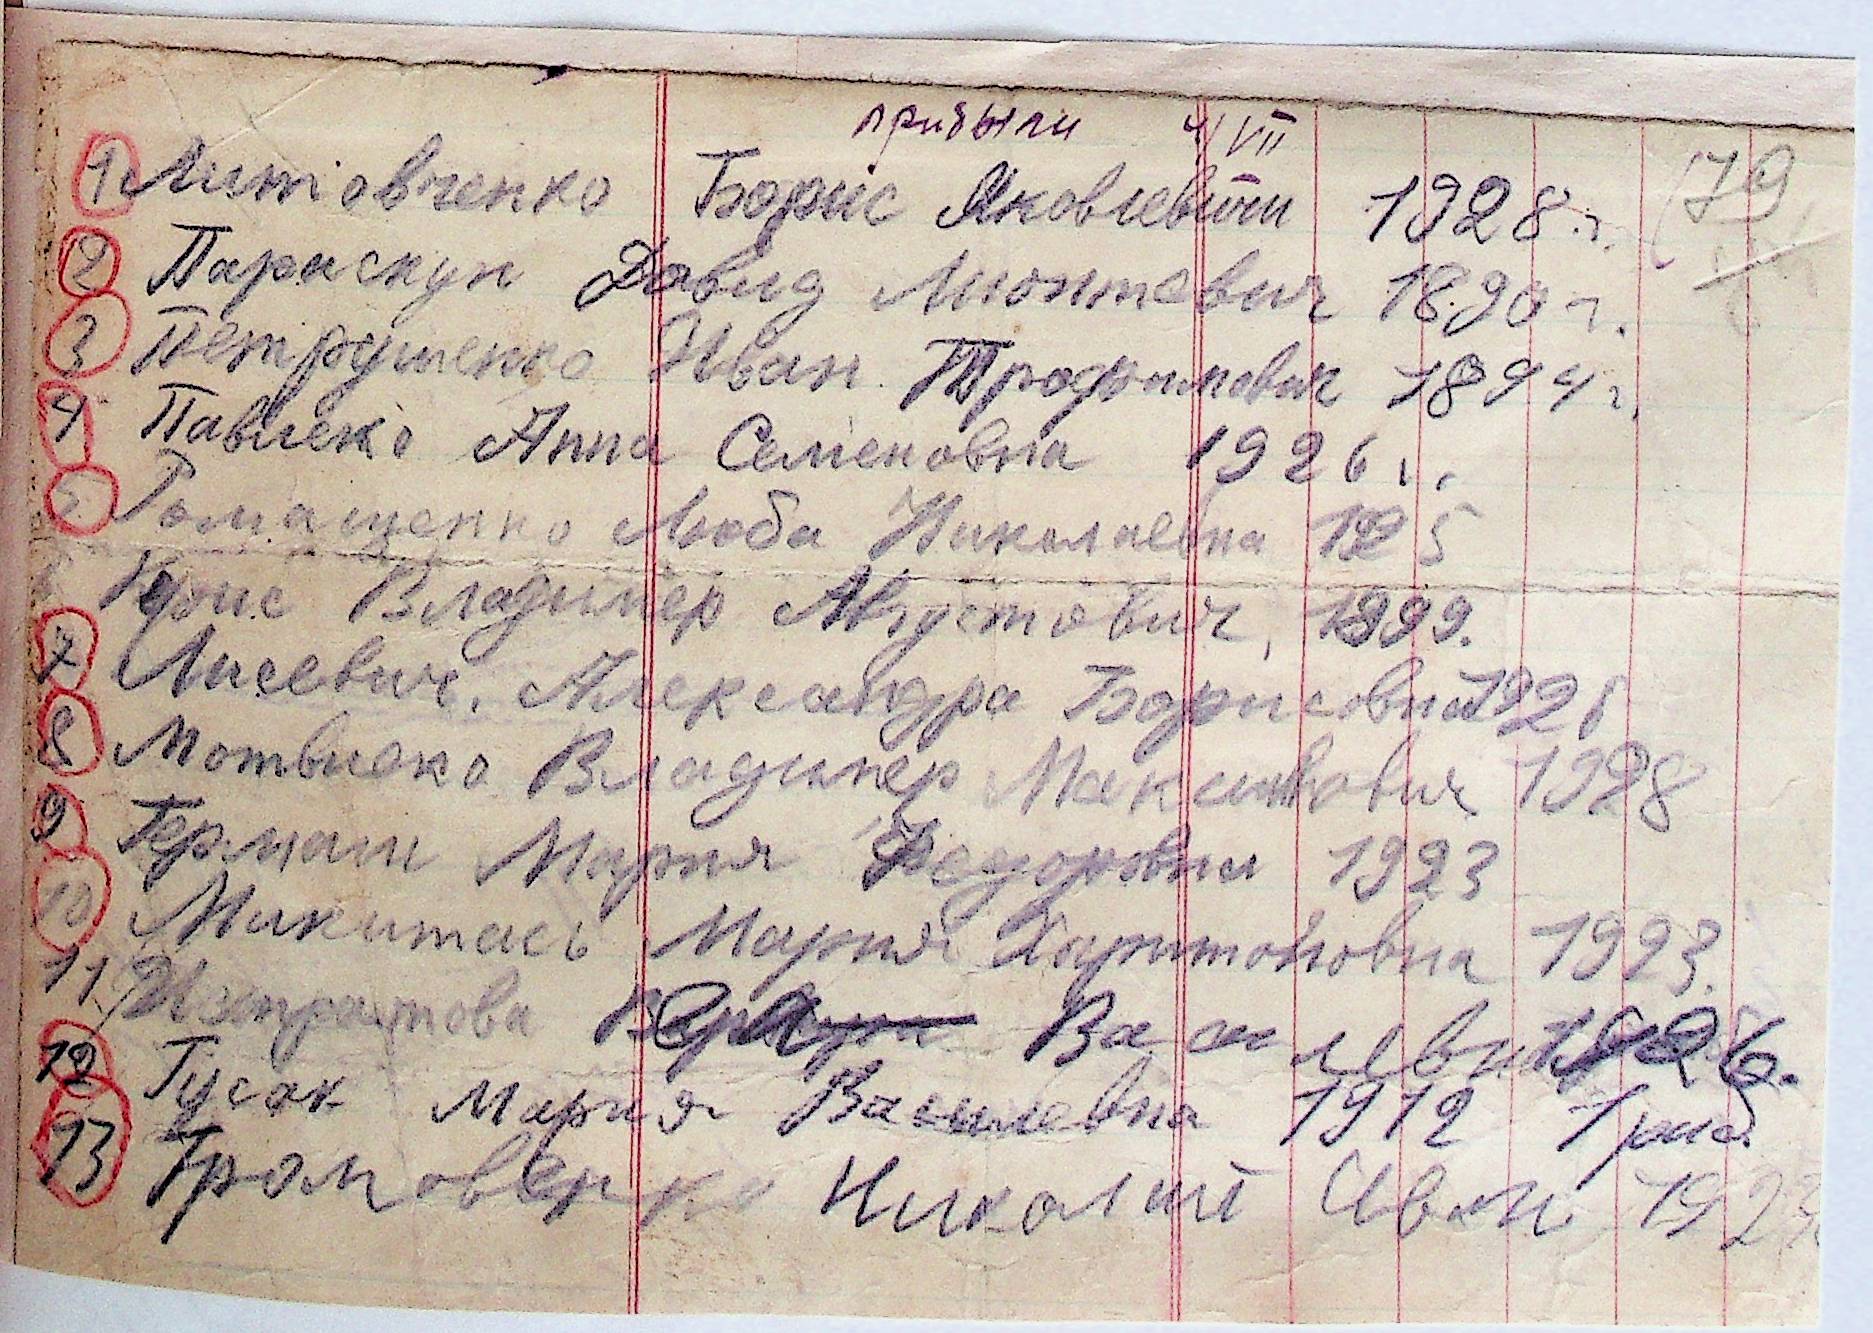 прибыли 4/VII
1 Литовченко Борис Яковлевич 1928 г. 79
2 Параскун Давид Лионтевич 1890 г.
3 Петрушенко Иван Трофимович 1894 г.
4 Павленко Анна Семеновна 1926 г.
5 Ромащенко Люба Николаевна 1925
6 Владимер Августович, 1899.
7 Лисевич. Александра Борисовна 192
8 Мотвиенко Владимер Максимович 1928
9 Герман Мария Федоровна 1923
10 Микитась Мария Харитоновна 1923.
11 Василевна 1926.
12 Гусак Мария Василевна 1912
13 Громовенко Николай Иван 1923